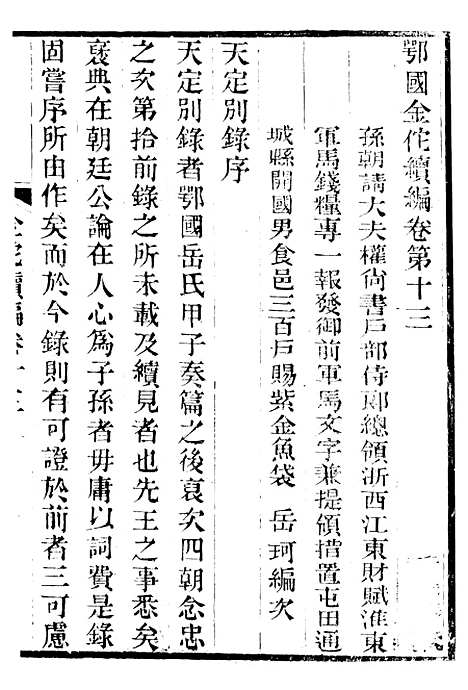 鄂國金佗續編卷第十三
孫朝請大夫權尚書戸部侍郎總領浙西江東財賦淮東
軍馬錢糧專一報發御前軍馬文字兼提領措置屯田通
城縣開國男食邑三百戸賜紫金魚袋 岳珂編次
天定別錄序
天定別錄者鄂國岳氏甲子奏篇之後裒次四朝念忠
之次第拾前錄之所未載及續見者也先王之事悉矣
襃典在朝廷公論在人心爲子孫者毋庸以詞費是錄
固嘗序所由作矣而於今錄則有可證於前者三可慮
金佗續編卷十三